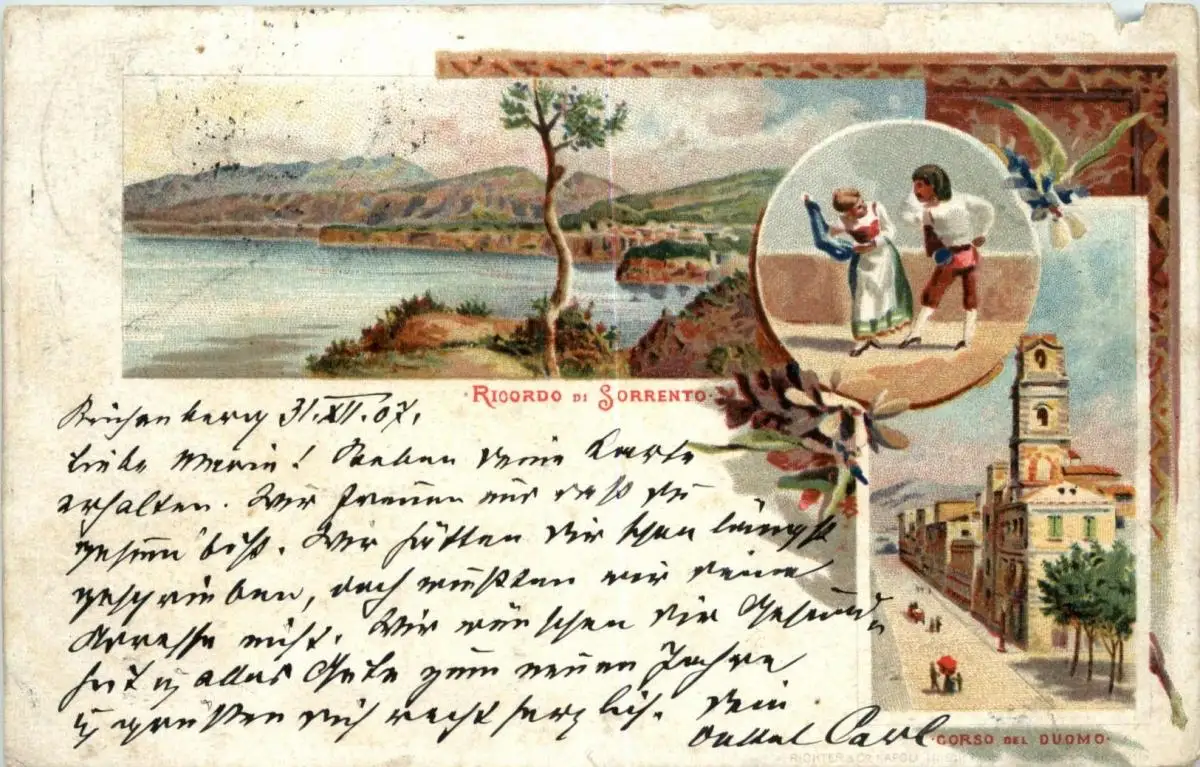 ·RICORDO DI SORRENTO·
Reichenberg 31.XII.07.
Liebe Marie! Soeben deine Karte
erhalten. Wir freuen uns daß du
gesund bist. Wir hätten dir schon längst
geschrieben, doch wußten wir deine
Adresse nicht. Wir wünschen dir Gesund-
heit u. alles Gute zum neuen Jahre
u. grüßen dich recht herzlich. Dein
Onkel Carl
·CORSO DEL DUOMO·
RICHTER & CO NAPOLI